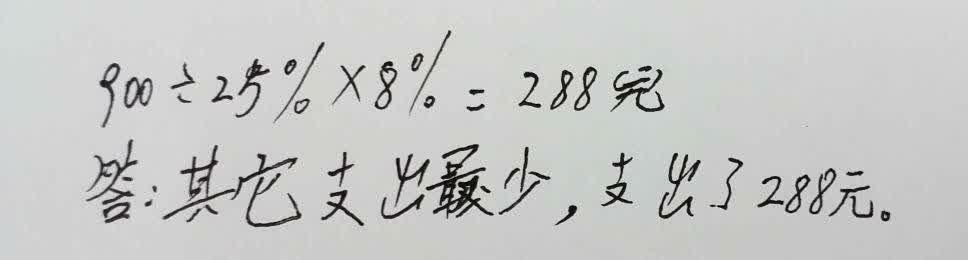 900÷25%×8%=288元
答:其它支出最少,支出了288元。